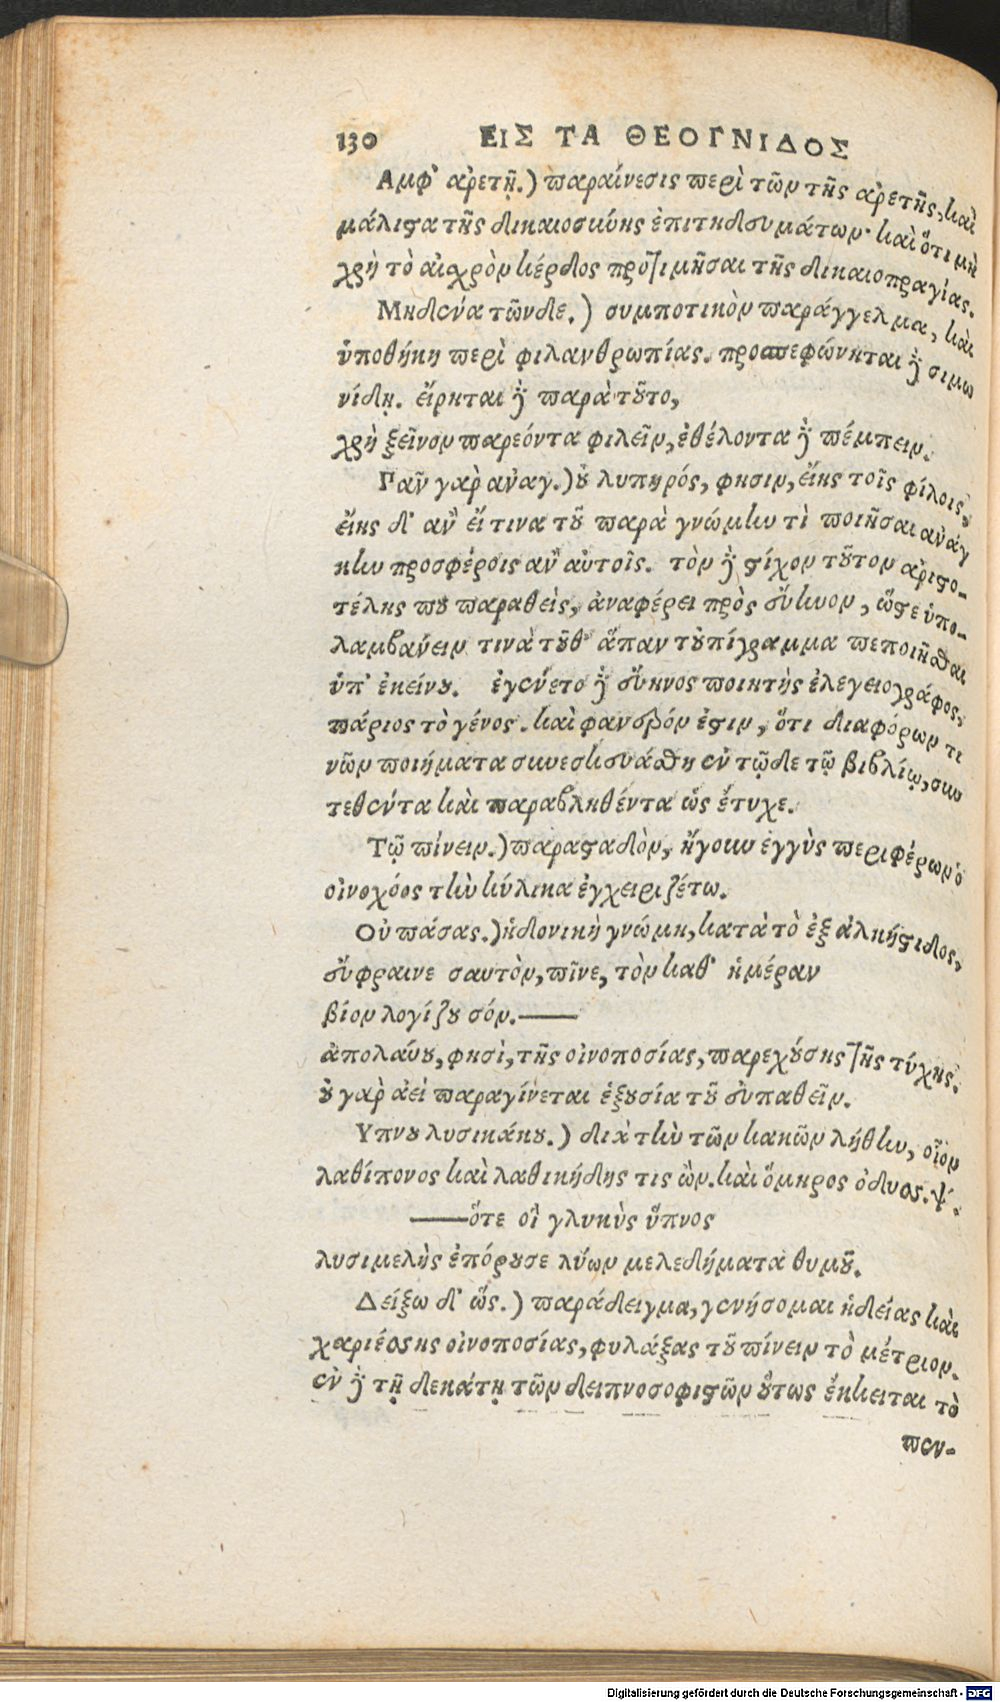 130 ΕΙΣ ΤΑ ΘΕΟΓΝΙΔΟΣ
Αμφ' ἀρετῇ.) παραίνεσις περὶ τῶν τῆς ἀρετῆς, καὶ
μάλιστα τῆς δικαιοσύνης ἐπιτηδευμάτων· καὶ ὅτι μὴ
χρὴ τὸ αἰσχρὸν κέρδος προτιμῆσαι τῆς δικαιοπραγίας.
Μηδένα τῶνδε.) συμποτικὸν παράγγελμα, καὶ
ὑποθήκη περὶ φιλανθρωπίας. προσπεφώνηται δὲ σιμω
νίδῃ. εἴρηται δὲ παρὰ τοῦτο,
χρὴ ξεῖνον παρεόντα φιλεῖν, ἐθέλοντα δὲ πέμπειν.
Πᾶν γὰρ ἀναγ.) οὐ λυπηρός, φησιν, εἴης τοῖς φίλοις,
εἴης δ' ἂν εἴ τινα τοῦ παρὰ γνώμην τὶ ποιῆσαι ἀνάγ
κην προσφέροις ἂν αὐτοῖς. τὸν δὲ στίχον τοῦτον ἀριστο-
τέλης που παραθεὶς, ἀναφέρει πρὸς εὔηνον, ὥστε ὑπο-
λαμβάνειν τινὰ τοῦθ' ἅπαν τοὐπίγραμμα πεποιῆσθαι
ὑπ' ἐκείνου. ἐγένετο δὲ εὔηνος ποιητὴς ἐλεγειογράφος,
πάριος τὸ γένος. καὶ φανερόν ἐστιν, ὅτι διαφόρων τι
νῶν ποιήματα συνεσκευάσθη ἐν τῷδε τῷ βιβλίῳ, συν
τεθέντα καὶ παραβληθέντα ὡς ἔτυχε.
Τῷ πίνειν.) παρασταδὸν, ἤγουν ἐγγὺς περιφέρων ὁ
οἰνοχόος τὴν κύλικα ἐγχειριζέτω.
Οὐ πάσας.) ἡδονικὴ γνώμη, κατὰ τὸ ἐξ ἀλκήστιδος,
εὔφραινε σαυτὸν, πῖνε, τὸν καθ' ἡμέραν
βίον λογίζου σόν.——
ἀπολαύου, φησὶ, τῆς οἰνοποσίας, παρεχούσης τῆς τύχης.
οὐ γὰρ ἀεὶ παραγίνεται ἐξουσία τοῦ εὐπαθεῖν.
Υπνου λυσικάκου.) διὰ τὴν τῶν κακῶν λήθην, οἷον
λαθίπονος καὶ λαθικήδης τις ὢν. καὶ ὅμηρος ὀδυσς. ψ.
——ὅτε οἱ γλυκὺς ὕπνος
λυσιμελὴς ἐπόρουσε λύων μελεδήματα θυμοῦ.
Δείξω δ' ὡς.) παράδειγμα, γενήσομαι ἡδείας καὶ
χαριέσσης οἰνοποσίας, φυλάξας τοῦ πίνειν τὸ μέτριον.
ἐν δὲ τῇ δεκάτῃ τῶν δειπνοσοφιστῶν οὕτως ἔκκειται τὸ
πεν-
Digitalisierung gefördert durch die Deutsche Forschungsgemeinschaft - DFG